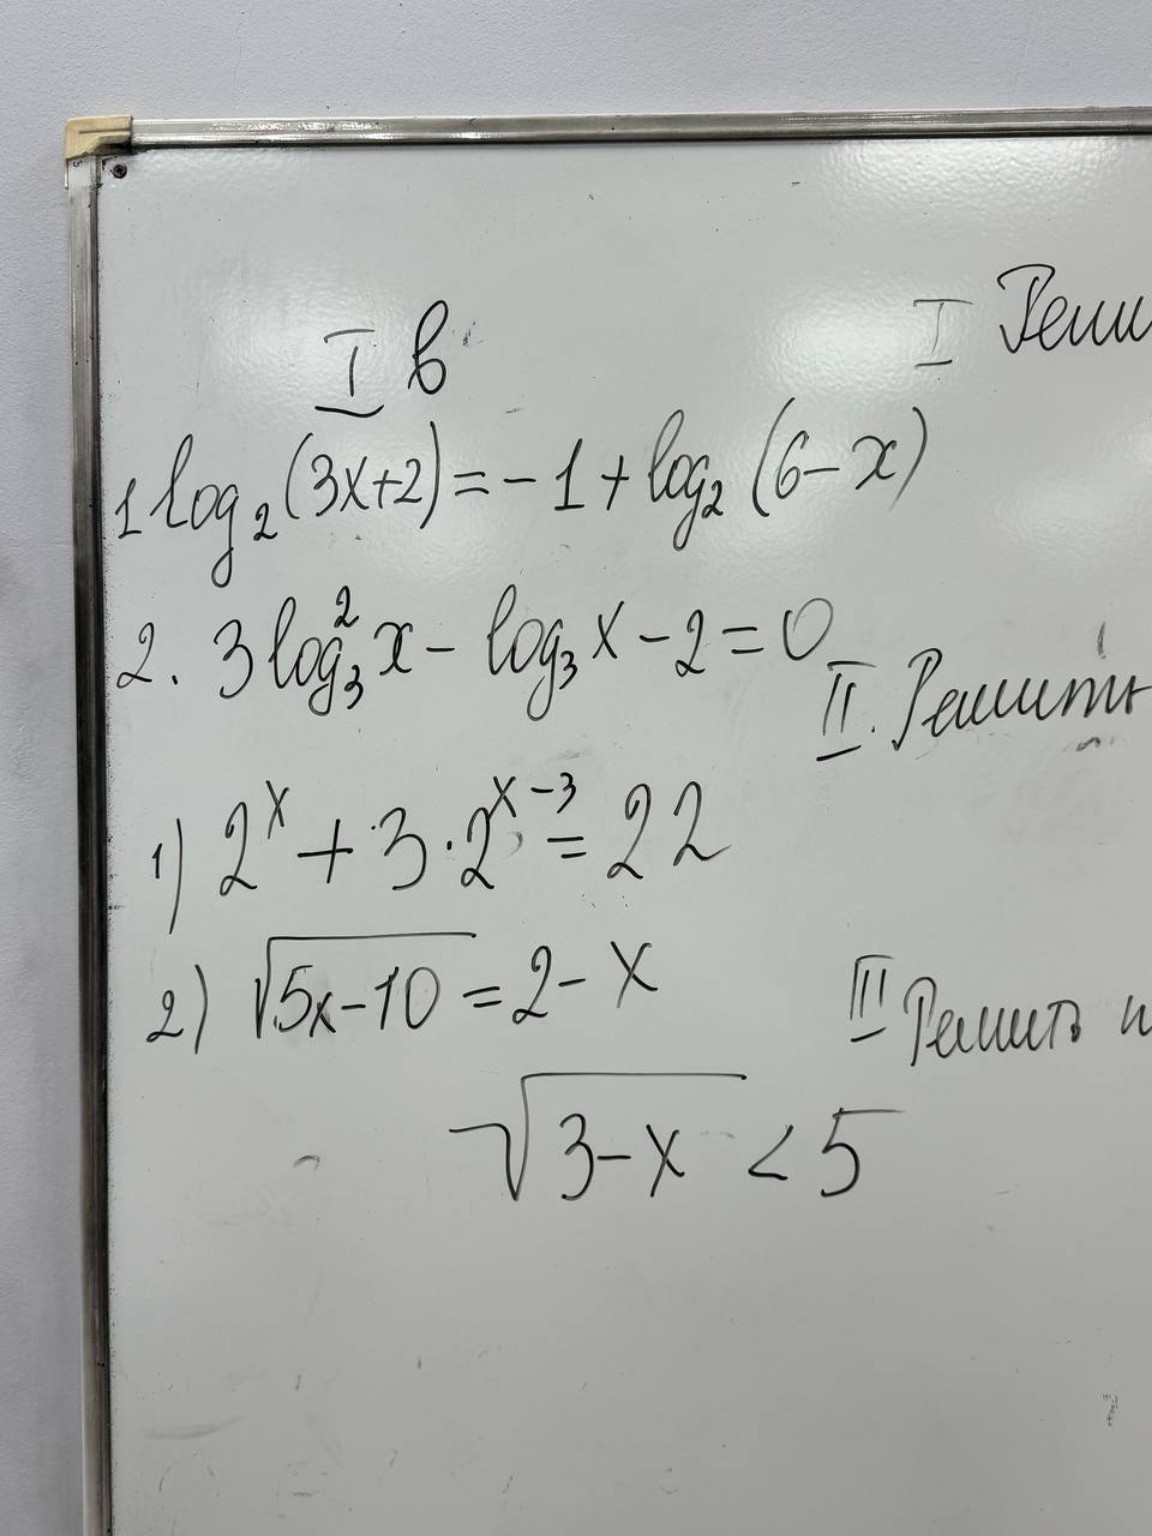 I в
I Реши
1 log₂(3x+2) = -1 + log₂(6-x)
2. 3 log₃² x - log₃ x - 2 = 0
II. Решить
1) 2ˣ + 3·2ˣ⁻³ = 22
2) √(5x-10) = 2-x
III Решить н
√(3-x) < 5